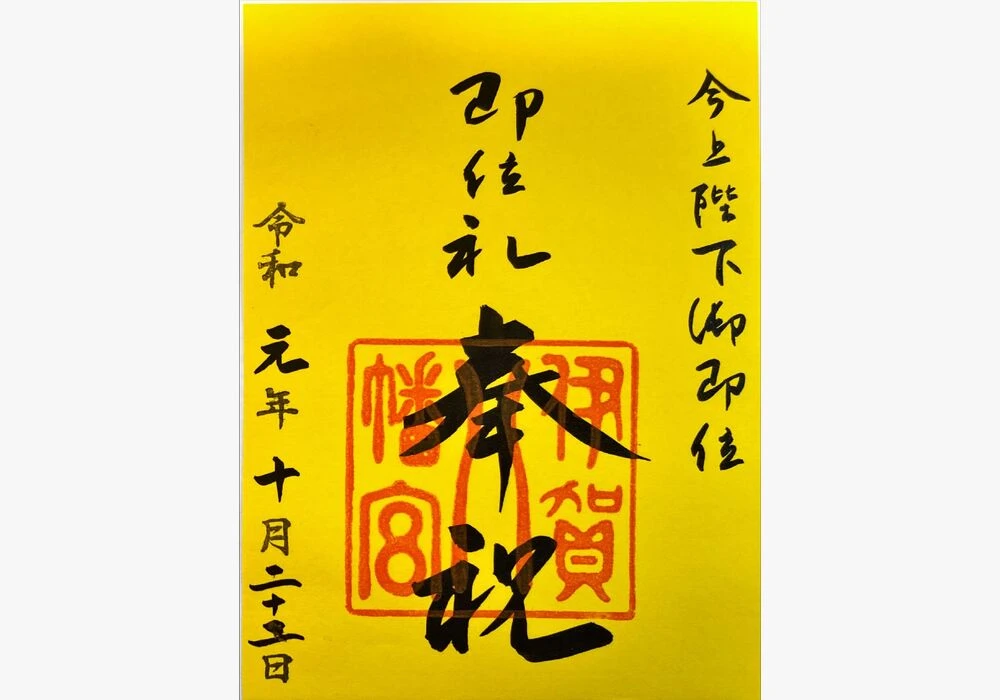 今上陛下御即位
即位礼
奉祝
伊賀
八
幡宮
令和元年十月二十五日